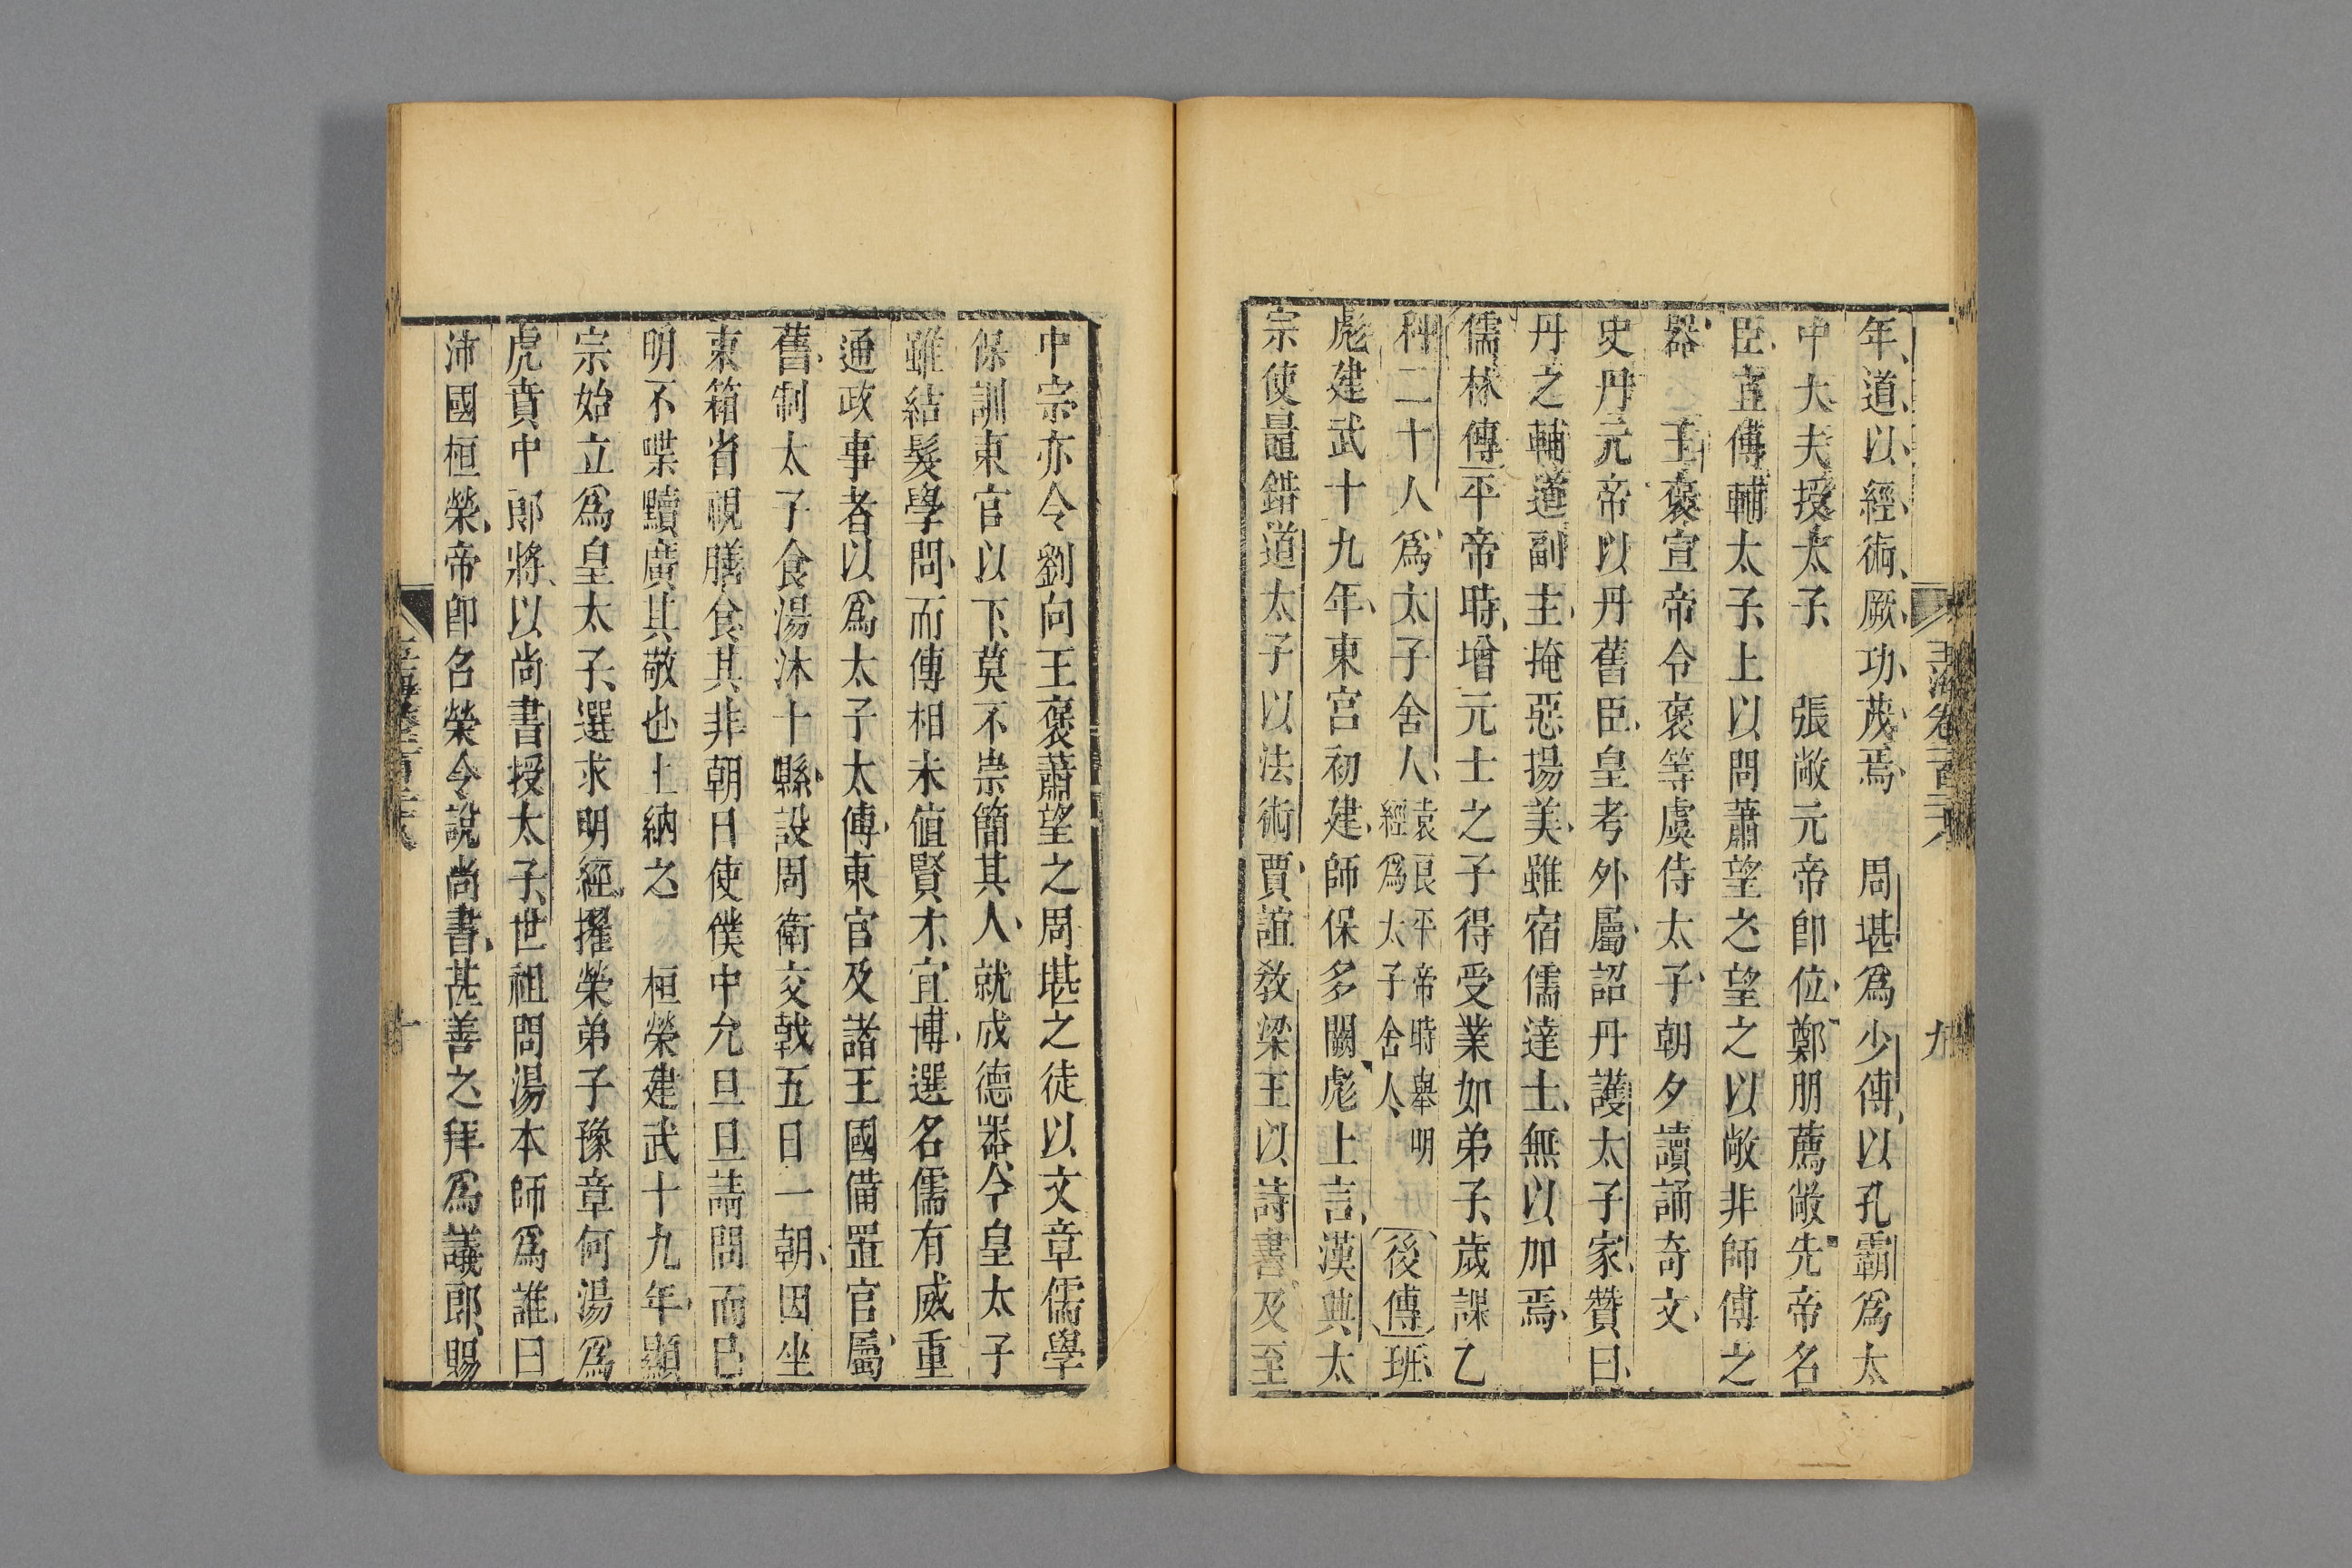 玉海卷一百二十八 九
年道以經術厥功茂焉 周堪爲少傅以孔霸爲太
中大夫授太子 張敞元帝卽位鄭朋薦敞先帝名
臣宜傅輔太子上以問蕭望之望之以敞非師傅之
器 王襃宣帝令襃等虞侍太子朝夕讀誦奇文
史丹元帝以丹舊臣皇考外屬詔丹護太子家贊曰
丹之輔道副主掩惡揚美雖宿儒達士無以加焉
儒林傳平帝時增元士之子得受業如弟子歲課乙
科二十人爲太子舍人袁良平帝時舉明經爲太子舍人 後傳班
彪建武十九年東宮初建師保多闕彪上言漢興太
宗使鼂錯道太子以法術賈誼敎梁王以詩書及至
中宗亦令劉向王襃蕭望之周堪之徒以文章儒學
保訓東宮以下莫不崇簡其人就成德器今皇太子
雖結髮學問而傅相未値賢才宜博選名儒有威重
通政事者以爲太子太傅東宮及諸王國備置官屬
舊制太子食湯沐十縣設周衛交戟五日一朝因坐
東箱省視膳食其非朝日使僕中允旦旦請問而已
明不媟黷廣其敬也上納之 桓榮建武十九年顯
宗始立爲皇太子選求明經擢榮弟子豫章何湯爲
虎賁中郎將以尚書授太子世祖問湯本師爲誰曰
沛國桓榮帝卽召榮令說尚書甚善之拜爲議郎賜
十